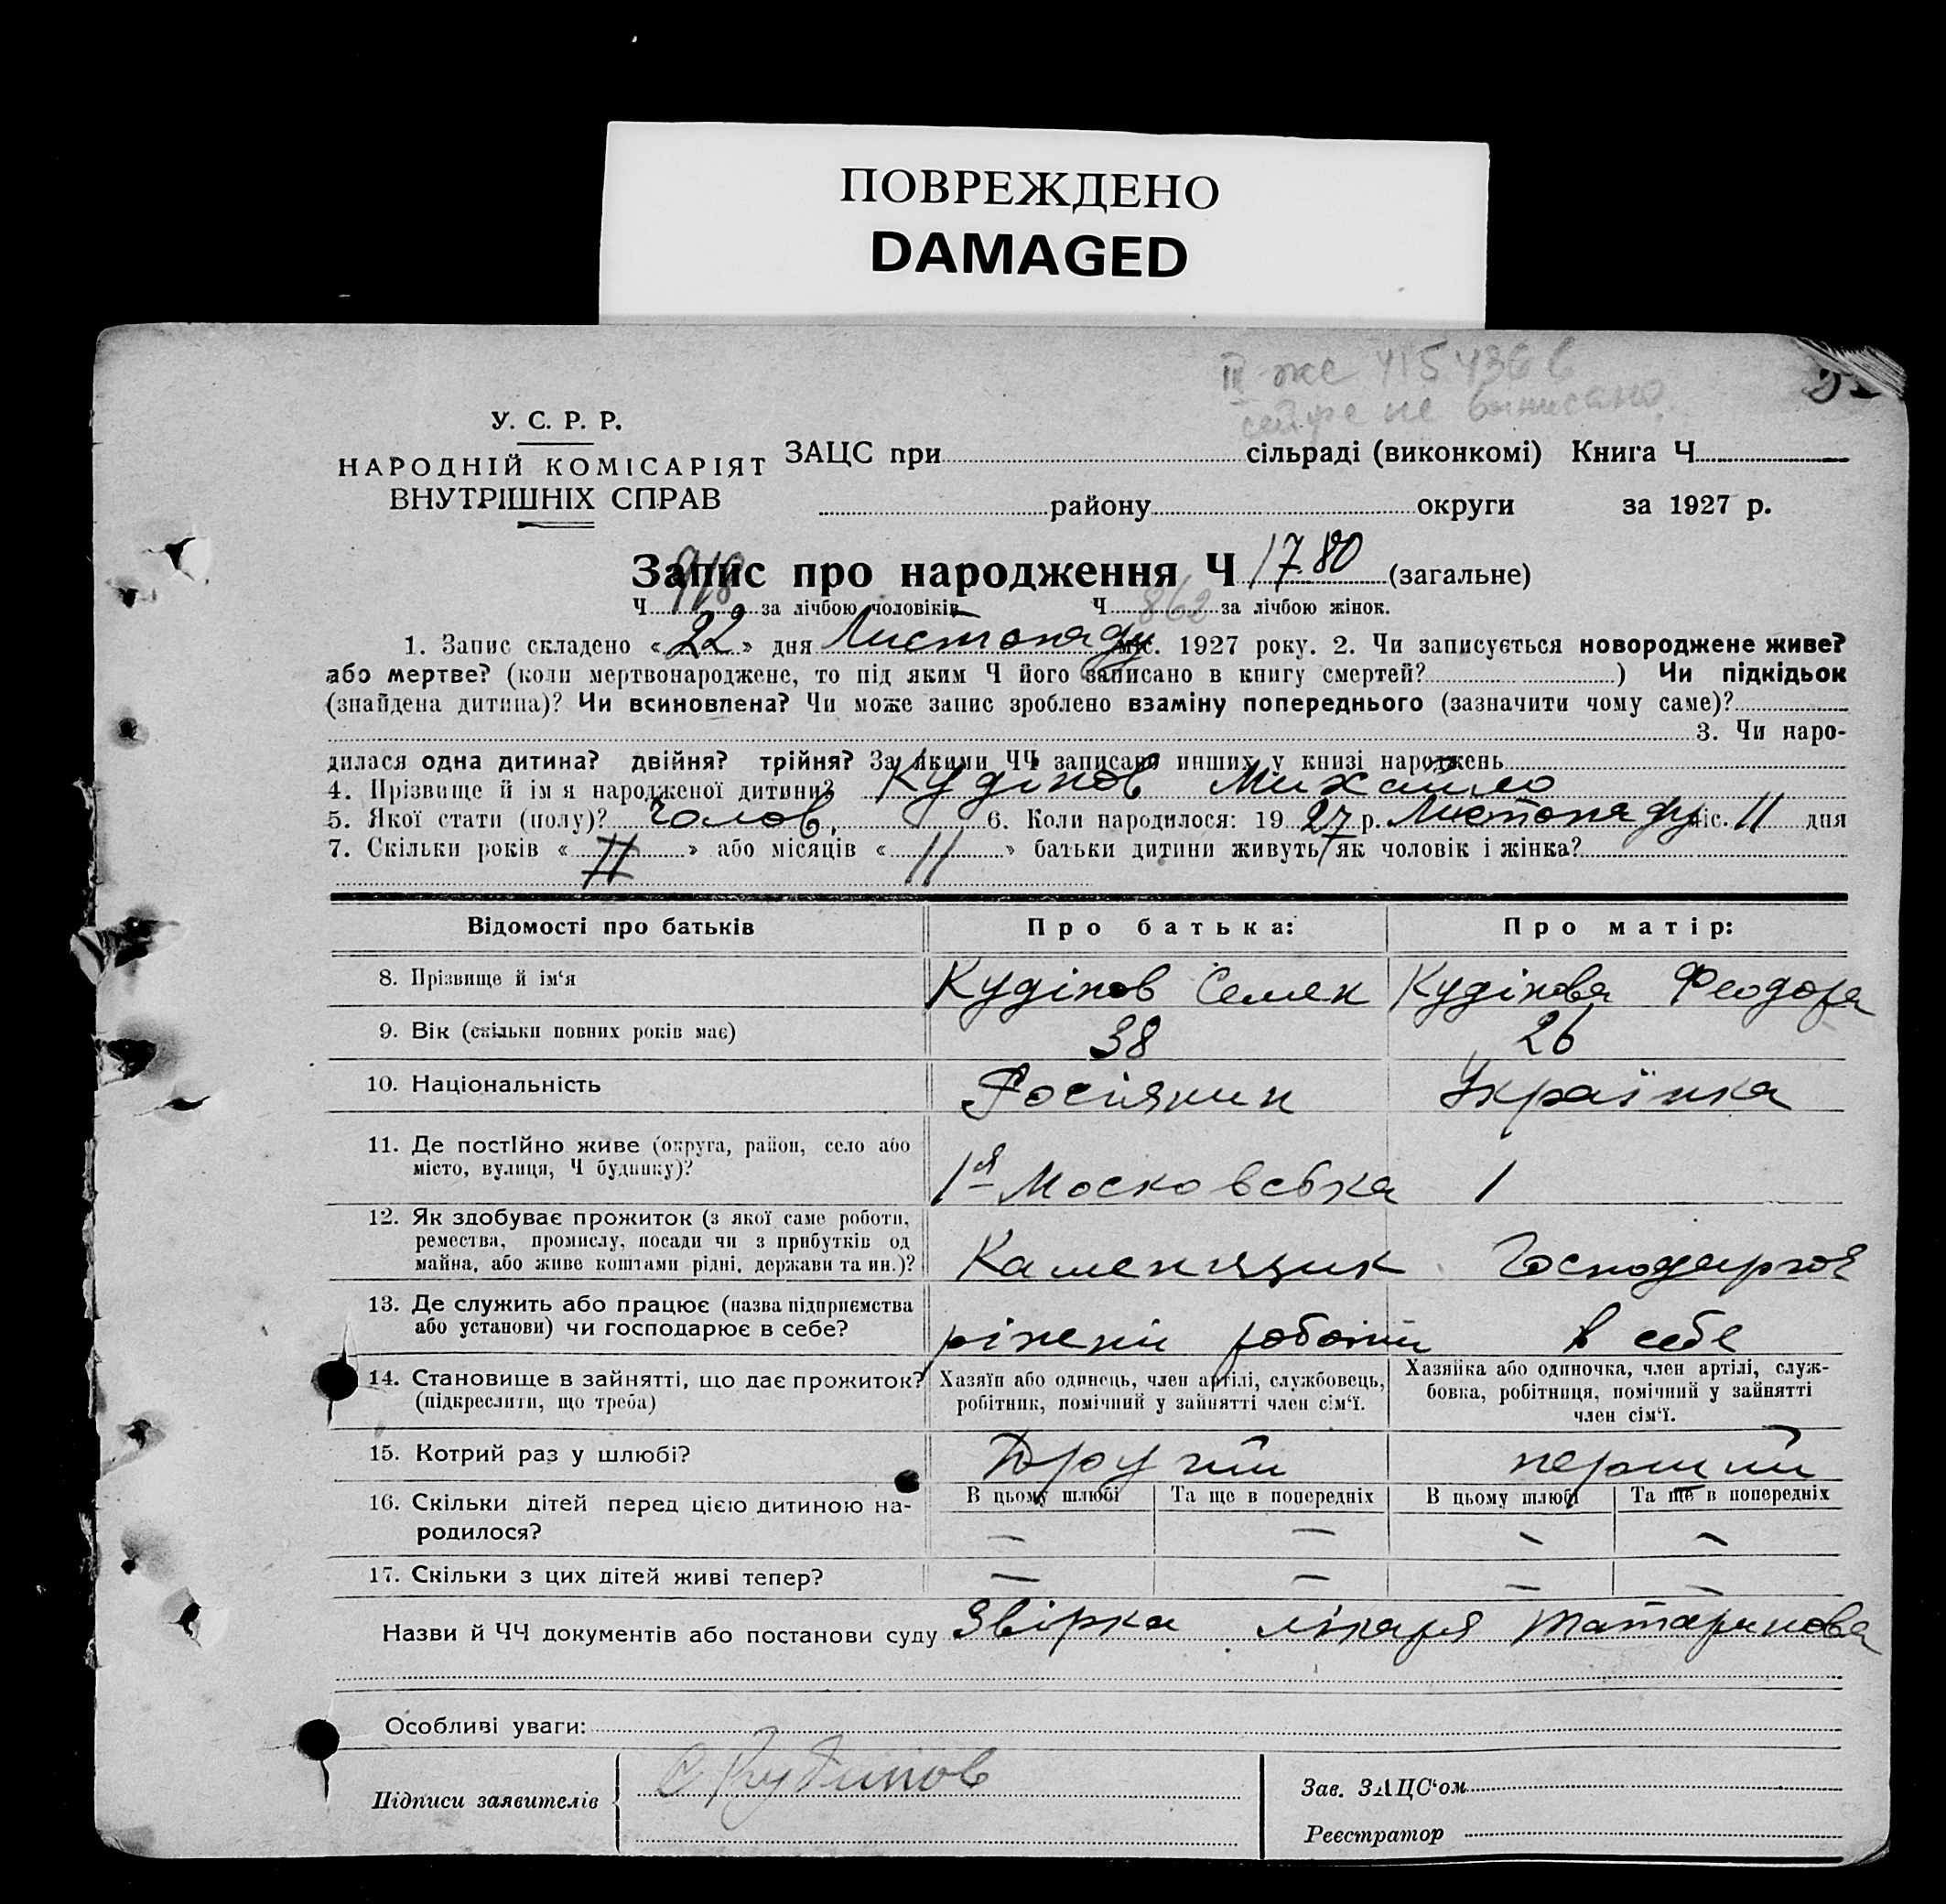 ПОВРЕЖДЕНО
DAMAGED
ІІІ же 415436
не виписано
У. С. Р. Р.
НАРОДНІЙ КОМІСАРІЯТ
ВНУТРІШНІХ СПРАВ
ЗАЦС при сільраді (виконкомі) Книга Ч
району округи за 1927 р.
Запис про народження Ч 1780 (загальне)
Ч 918 за лічбою чоловіків Ч 862 за лічбою жінок.
1. Запис складено «22» дня Листопаду міс. 1927 року. 2. Чи записується новороджене живе?
або мертве? (коли мертвонароджене, то під яким Ч його записано в книгу смертей? ) Чи підкідьок
(знайдена дитина)? Чи всиновлена? Чи може запис зроблено взаміну попереднього (зазначити чому саме)?
3. Чи наро-
дилася одна дитина? двійня? трійня? За якими ЧЧ записано инших у книзі народжень
4. Прізвище й ім я народженої дитини? Кудінов Михайло
5. Якої стати (полу)? Чолов. 6. Коли народилося: 1927 р. Листопаду міс. 11 дня
7. Скільки років « 11 » або місяців « 11 » батьки дитини живуть як чоловік і жінка?
Відомості про батьків Про батька: Про матір:
8. Прізвище й ім‘я Кудінов Семен Кудінова Феодора
9. Вік (скільки повних років має) 38 26
10. Національність Росіянин Українка
11. Де постійно живе (округа, район, село або
місто, вулиця, Ч будинку)? 1я Московська 1
12. Як здобуває прожиток (з якої саме роботи,
ремества, промислу, посади чи з прибутків од
майна, або живе коштами рідні, держави та ин.)? Каменщик Господарює
13. Де служить або працює (назва підприємства
або установи) чи господарює в себе? ріжені роботи в себе
14. Становище в зайнятті, що дає прожиток?
(підкреслити, що треба)
Хазяїн або одинець, член артілі, службовець,
робітник, помічний у зайнятті член сім‘ї.
Хазяйка або одиночка, член артілі, служ-
бовка, робітниця, помічний у зайнятті
член сім‘ї.
15. Котрий раз у шлюбі? Другий перший
16. Скільки дітей перед цією дитиною на-
родилося?
В цьому шлюбі Та ще в попередніх В цьому шлюбі Та ще в попередніх
— — — —
17. Скільки з цих дітей живі тепер? — — — —
Назви й ЧЧ документів або постанови суду Звірка лікаря Татаринова
Особливі уваги:
Підписи заявителів С Кудинов
Зав. ЗАЦС‘ом
Реєстратор